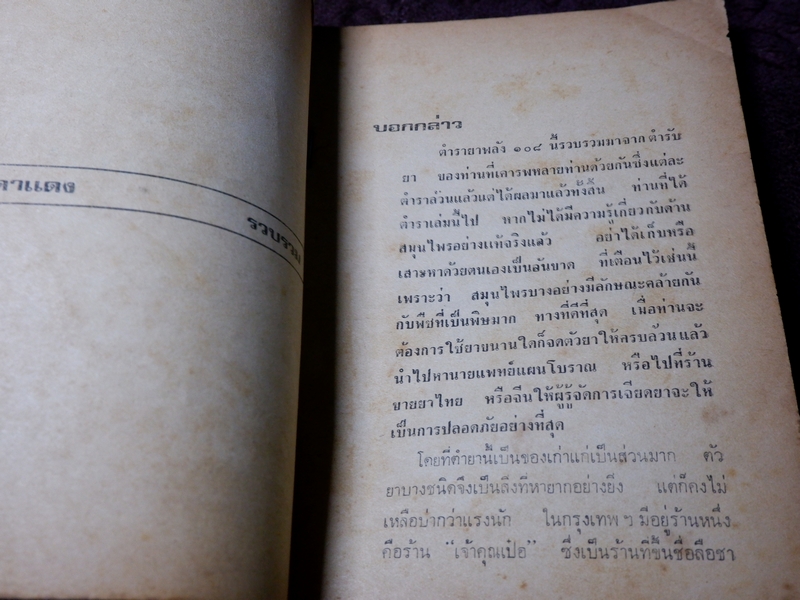 ดาแดง
รวบรวม
บอกกล่าว
ตำรายาพลัง ๑๐๘ นี้รวบรวมมาจากตำรับ
ยา ของท่านที่เคารพหลายท่านด้วยกันซึ่งแต่ละ
ตำราล้วนแล้วแต่ได้ผลมาแล้วทั้งสิ้น ท่านที่ได้
ตำราเล่มนี้ไป หากไม่ได้มีความรู้เกี่ยวกับด้าน
สมุนไพรอย่างแท้จริงแล้ว อย่าได้เก็บหรือ
เสาะหาด้วยตนเองเป็นอันขาด ที่เตือนไว้เช่นนี้
เพราะว่า สมุนไพรบางอย่างมีลักษณะคล้ายกัน
กับพืชที่เป็นพิษมาก ทางที่ดีที่สุด เมื่อท่านจะ
ต้องการใช้ยาขนานใดก็จดตัวยาให้ครบถ้วนแล้ว
นำไปหานายแพทย์แผนโบราณ หรือไปที่ร้าน
ขายยาไทย หรือจีนให้ผู้รู้จัดการเจียดยาจะให้
เป็นการปลอดภัยอย่างที่สุด
โดยที่ตำยานี้เป็นของเก่าแก่เป็นส่วนมาก ตัว
ยาบางชนิดจึงเป็นสิ่งที่หายากอย่างยิ่ง แต่ก็คงไม่
เหลือบ่ากว่าแรงนัก ในกรุงเทพ ๆ มีอยู่ร้านหนึ่ง
คือร้าน "เจ้าคุณเป๋อ" ซึ่งเป็นร้านที่ขึ้นชื่อลือชา